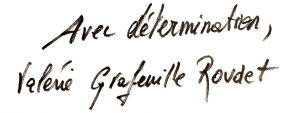 Avec détermination,
Valérie Grafeuille Roudet